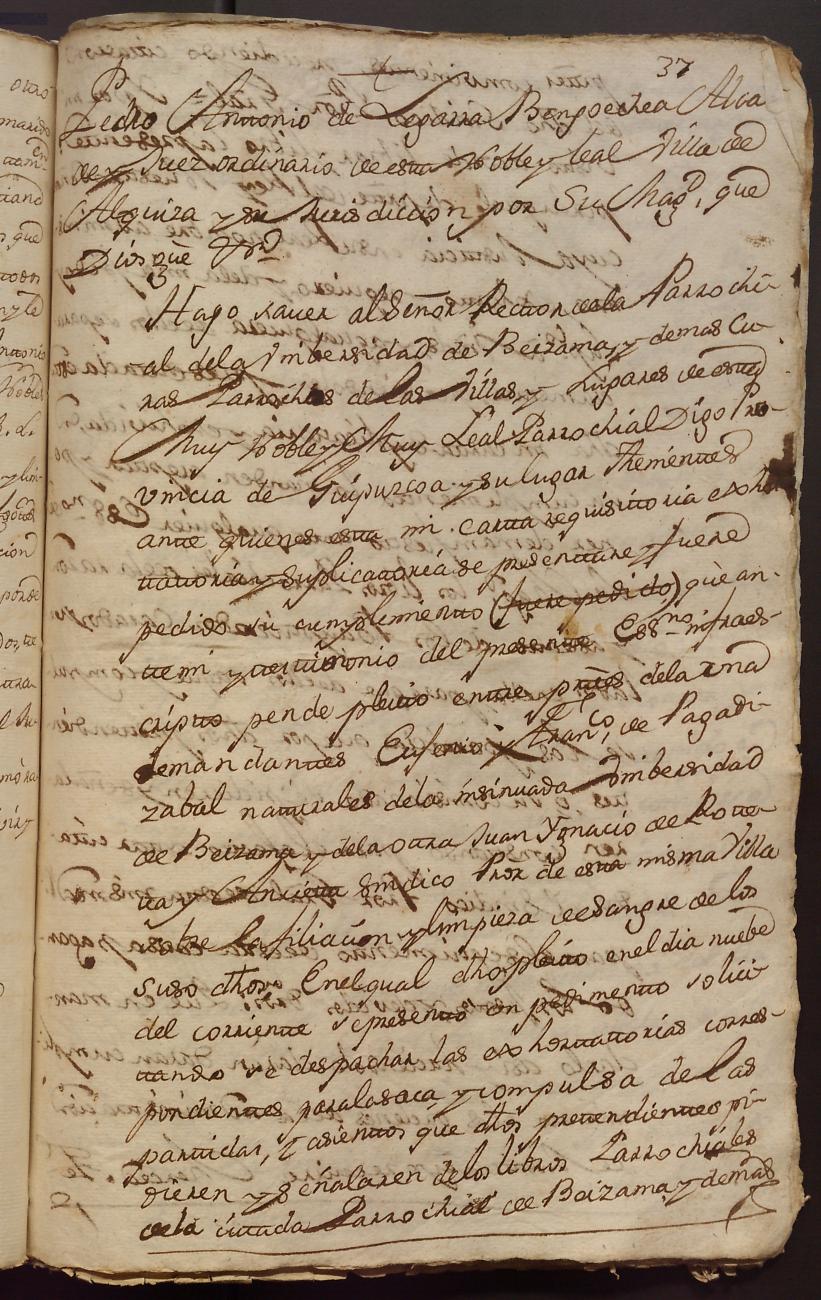 37
Pedro Antonio de Legarra Bengoechea Alca
de y Juez ordinario de esta Noble y leal Villa de
Alquiza y su Jurisdicion por Su Mag.d, que
Dios gue &ra.
Hago saver al Señor Rector de la Parrochi-
al de la Vnibersidad de Beizama, y demas Cu-
ras Parrochos de las Villas, y Lugares de esta
Muy Noble y Muy Leal Parrochial Digo Pro-
vincia de Guipuzcoa y su lugar Themientes
ante quienes esta mi carta requisitoria exhor
tatoria y Suplicatoria se presentare y fuere
pedido su cumplimiento (fuere pedido) que an-
te mi y testimonio del presente Essno infraes-
cripto pende pleito entre ptes de la una
demandantes Eusenio y Franco, de Pagadi-
zabal naturales de la insinuada Vnibersidad
de Beizama y de la otra Juan Ygnacio de Rotte-
ta y Ancieta Sindico Pror de esta misma Villa
sobre la filiacion y limpieza de sangre de los
suso dhos. En el qual dho pleito en el dia nuebe
del corriente se presento en pedimento solici
tando se despachar las exhortatorias corres-
pondientes para la saca, y compulsa de las
partidas, y asientos que dhos pretendientes pi-
dieren y señalaren de los libros Parrochiales
de la citada Parrochial de Beizama y demas